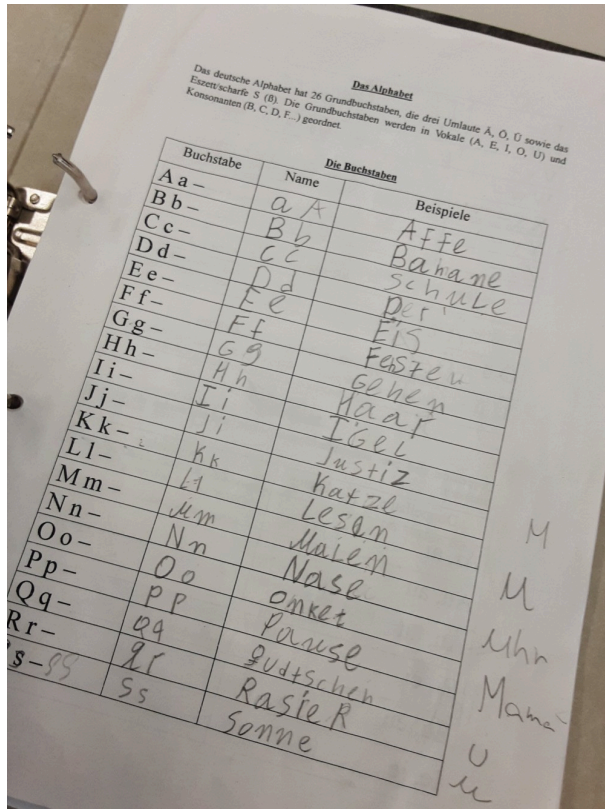 Das Alphabet
Das deutsche Alphabet hat 26 Grundbuchstaben, die drei Umlaute Ä, Ö, Ü sowie das
Eszett/scharfe S (ß). Die Grundbuchstaben werden in Vokale (A, E, I, O, U) und
Konsonanten (B, C, D, F...) geordnet.
Die Buchstaben
Buchstabe Name Beispiele
A a – a A Affe
B b – B b Banane
C c – C c Schule
D d – D d Der
E e – E e Eis
F f – F f
G g – G g Gehen
H h – H h Haar
I i – I i IGel
J j – J i Justiz
K k – K k Katze
L l – L l Lesen
M m – M m Malen
N n – N n Nase
O o – O o Onkel
P p – P P Pause
Q q – Q q
R r – R r RasieR
S s Sonne
M
M
Uhr
Mama
U